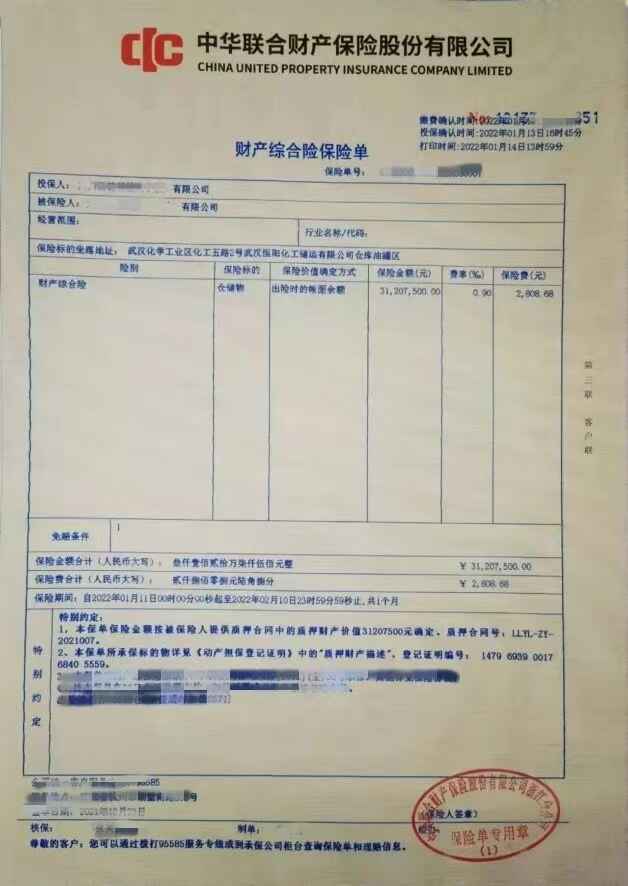 中华联合财产保险股份有限公司
CHINA UNITED PROPERTY INSURANCE COMPANY LIMITED
缴费确认时间:2022年01月
投保确认时间:2022年01月13日16时45分
打印时间:2022年01月14日13时59分
财产综合险保险单
保险单号:
投保人: 有限公司
被保险人: 有限公司
经营范围:
行业名称/代码:
保险标的坐落地址: 武汉化学工业区化工五路2号武汉恒阳化工储运有限公司仓库油罐区
险别 保险标的 保险价值确定方式 保险金额(元) 费率(‰) 保险费(元)
财产综合险 仓储物 出险时的帐面余额 31,207,500.00 0.90 2,808.68
第三联 客户联
免赔条件
保险金额合计(人民币大写): 叁仟壹佰贰拾万柒仟伍佰元整 ¥ 31,207,500.00
保险费合计(人民币大写): 贰仟捌佰零捌元陆角捌分 ¥ 2,808.68
保险期间: 自2022年01月11日00时00分00秒起至2022年02月10日23时59分59秒止,共1个月
特别约定
特别约定:
1、本保单保险金额按被保险人提供质押合同中的质押财产价值31207500元确定、质押合同号: LLYL-ZY-
2021007。
2、本保单所承保标的物详见《动产担保登记证明》中的"质押财产描述"、登记证明编号: 1479 6939 0017
6840 5559。
95585
核保: 制单:
保险人签章)
保险单专用章
(1)
尊敬的客户: 您可以通过拨打95585服务专线或到承保公司柜台查询保险单和理赔信息。